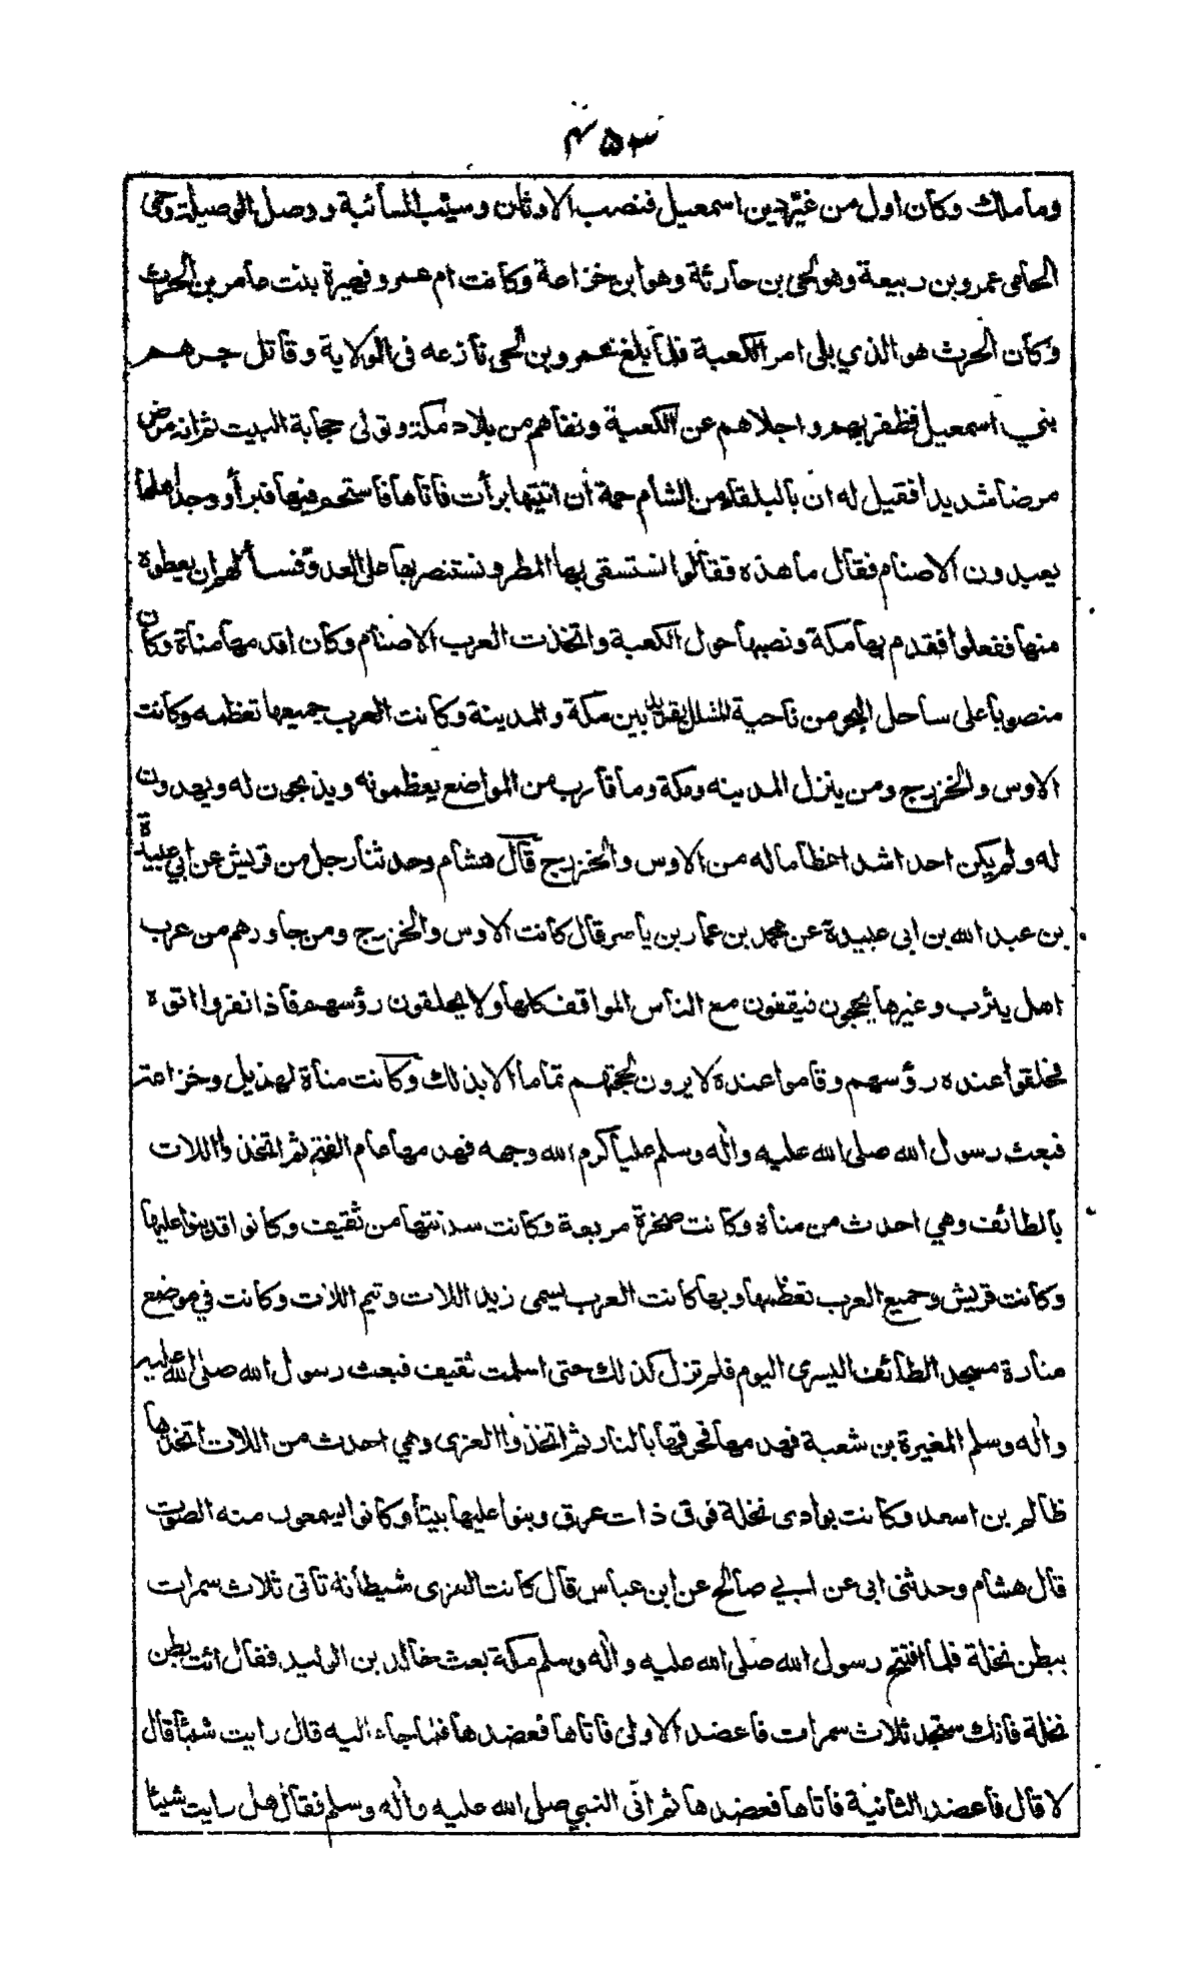 ۴۵۳
وما ملك وكان اول من غيّر دين اسمعيل فنصب الاوثان وسيّب السائبة ووصل الوصيلة وحمى
الحامى عمرو بن ربيعة وهو لحى بن حارثة وهو ابن خزاعة وكانت ام عمرو فهيرة بنت عامر بن الحرث
وكان الحرث هو الذي يلى امر الكعبة فلما بلغ عمرو بن لحى نازعه فى الولاية وقاتل جرهم
بني اسمعيل فظفر بهم واجلاهم عن الكعبة ونفاهم من بلاد مكة وتولى حجابة البيت ثم انه مرض
مرضا شديدا فقيل له ان بالبلقاء من الشام حمة ان اتيتها برأت فاتاها فاستحم فيها فبرأ ووجد اهلها
يعبدون الاصنام فقال ما هذه فقالوا نستسقى بها المطر ونستنصر بها على العدو فسألهم ان يعطوه
منها ففعلوا فقدم بها مكة ونصبها حول الكعبة واتخذت العرب الاصنام وكان اقدمها مناة وكان
منصوبا على ساحل البحر من ناحية المشلل بقديد بين مكة والمدينة وكانت العرب جميعها تعظمه وكانت
الاوس والخزرج ومن ينزل المدينه ومكة وما قارب من المواضع يعظمونه ويذبحون له ويهدون
له ولم يكن احد اشد اعظاما له من الاوس والخزرج قال هشام وحدثنا رجل من قريش عن ابي عبيدة
بن عبد الله بن ابى عبيدة عن محمد بن عمار بن ياسر قال كانت الاوس والخزرج ومن جاورهم من عرب
اهل يثرب وغيرها يحجون فيقفون مع الناس المواقف كلها ولا يحلقون رؤسهم فاذا نفروا اتوه
فحلقوا عنده رؤسهم وقاموا عنده لا يرون لحجتهم تماما الا بذلك وكانت مناة لهذيل وخزاعة
فبعث رسول الله صلى الله عليه واٰله وسلم عليا كرم الله وجهه فهدمها عام الفتح ثم اتخذوا اللات
بالطائف وهي احدث من مناة وكانت صخرة مربعة وكانت سدنتها من ثقيف وكانوا قد بنوا عليها
وكانت قريش وجميع العرب تعظمها وبها كانت العرب تسمى زيد اللات وتيم اللات وكانت في موضع
منارة مسجد الطائف اليسرى اليوم فلم تزل كذلك حتى اسلمت ثقيف فبعث رسول الله صلى الله عليه
واٰله وسلم المغيرة بن شعبة فهدمها فحرقها بالنار ثم اتخذوا العزى وهي احدث من اللات اتخذها
ظالم بن اسعد وكانت بوادى نخلة فوق ذات عرق وبنوا عليها بيتا وكانوا يسمعون منه الصوت
قال هشام وحدثنى ابى عن ابي صالح عن ابن عباس قال كانت العزى شيطانة تاتى ثلاث سمرات
ببطن نخلة فلما افتتح رسول الله صلى الله عليه واٰله وسلم مكة بعث خالد بن الوليد فقال ائت بطن
نخلة فانك ستجد ثلاث سمرات فاعضد الاولى فاتاها فعضدها فلما جاء اليه قال رايت شيئا قال
لا قال فاعضد الثانية فاتاها فعضدها ثم اتى النبي صلى الله عليه واٰله وسلم فقال هل رايت شيئا